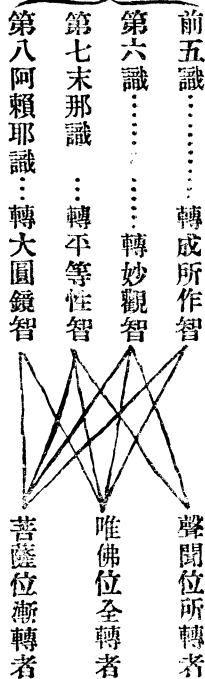 前五識………………轉成所作智
第六識………………轉妙觀智
第七末那識…轉平等性智
第八阿賴耶識…轉大圓鏡智
聲聞位所轉者
唯佛位全轉者
菩薩位漸轉者